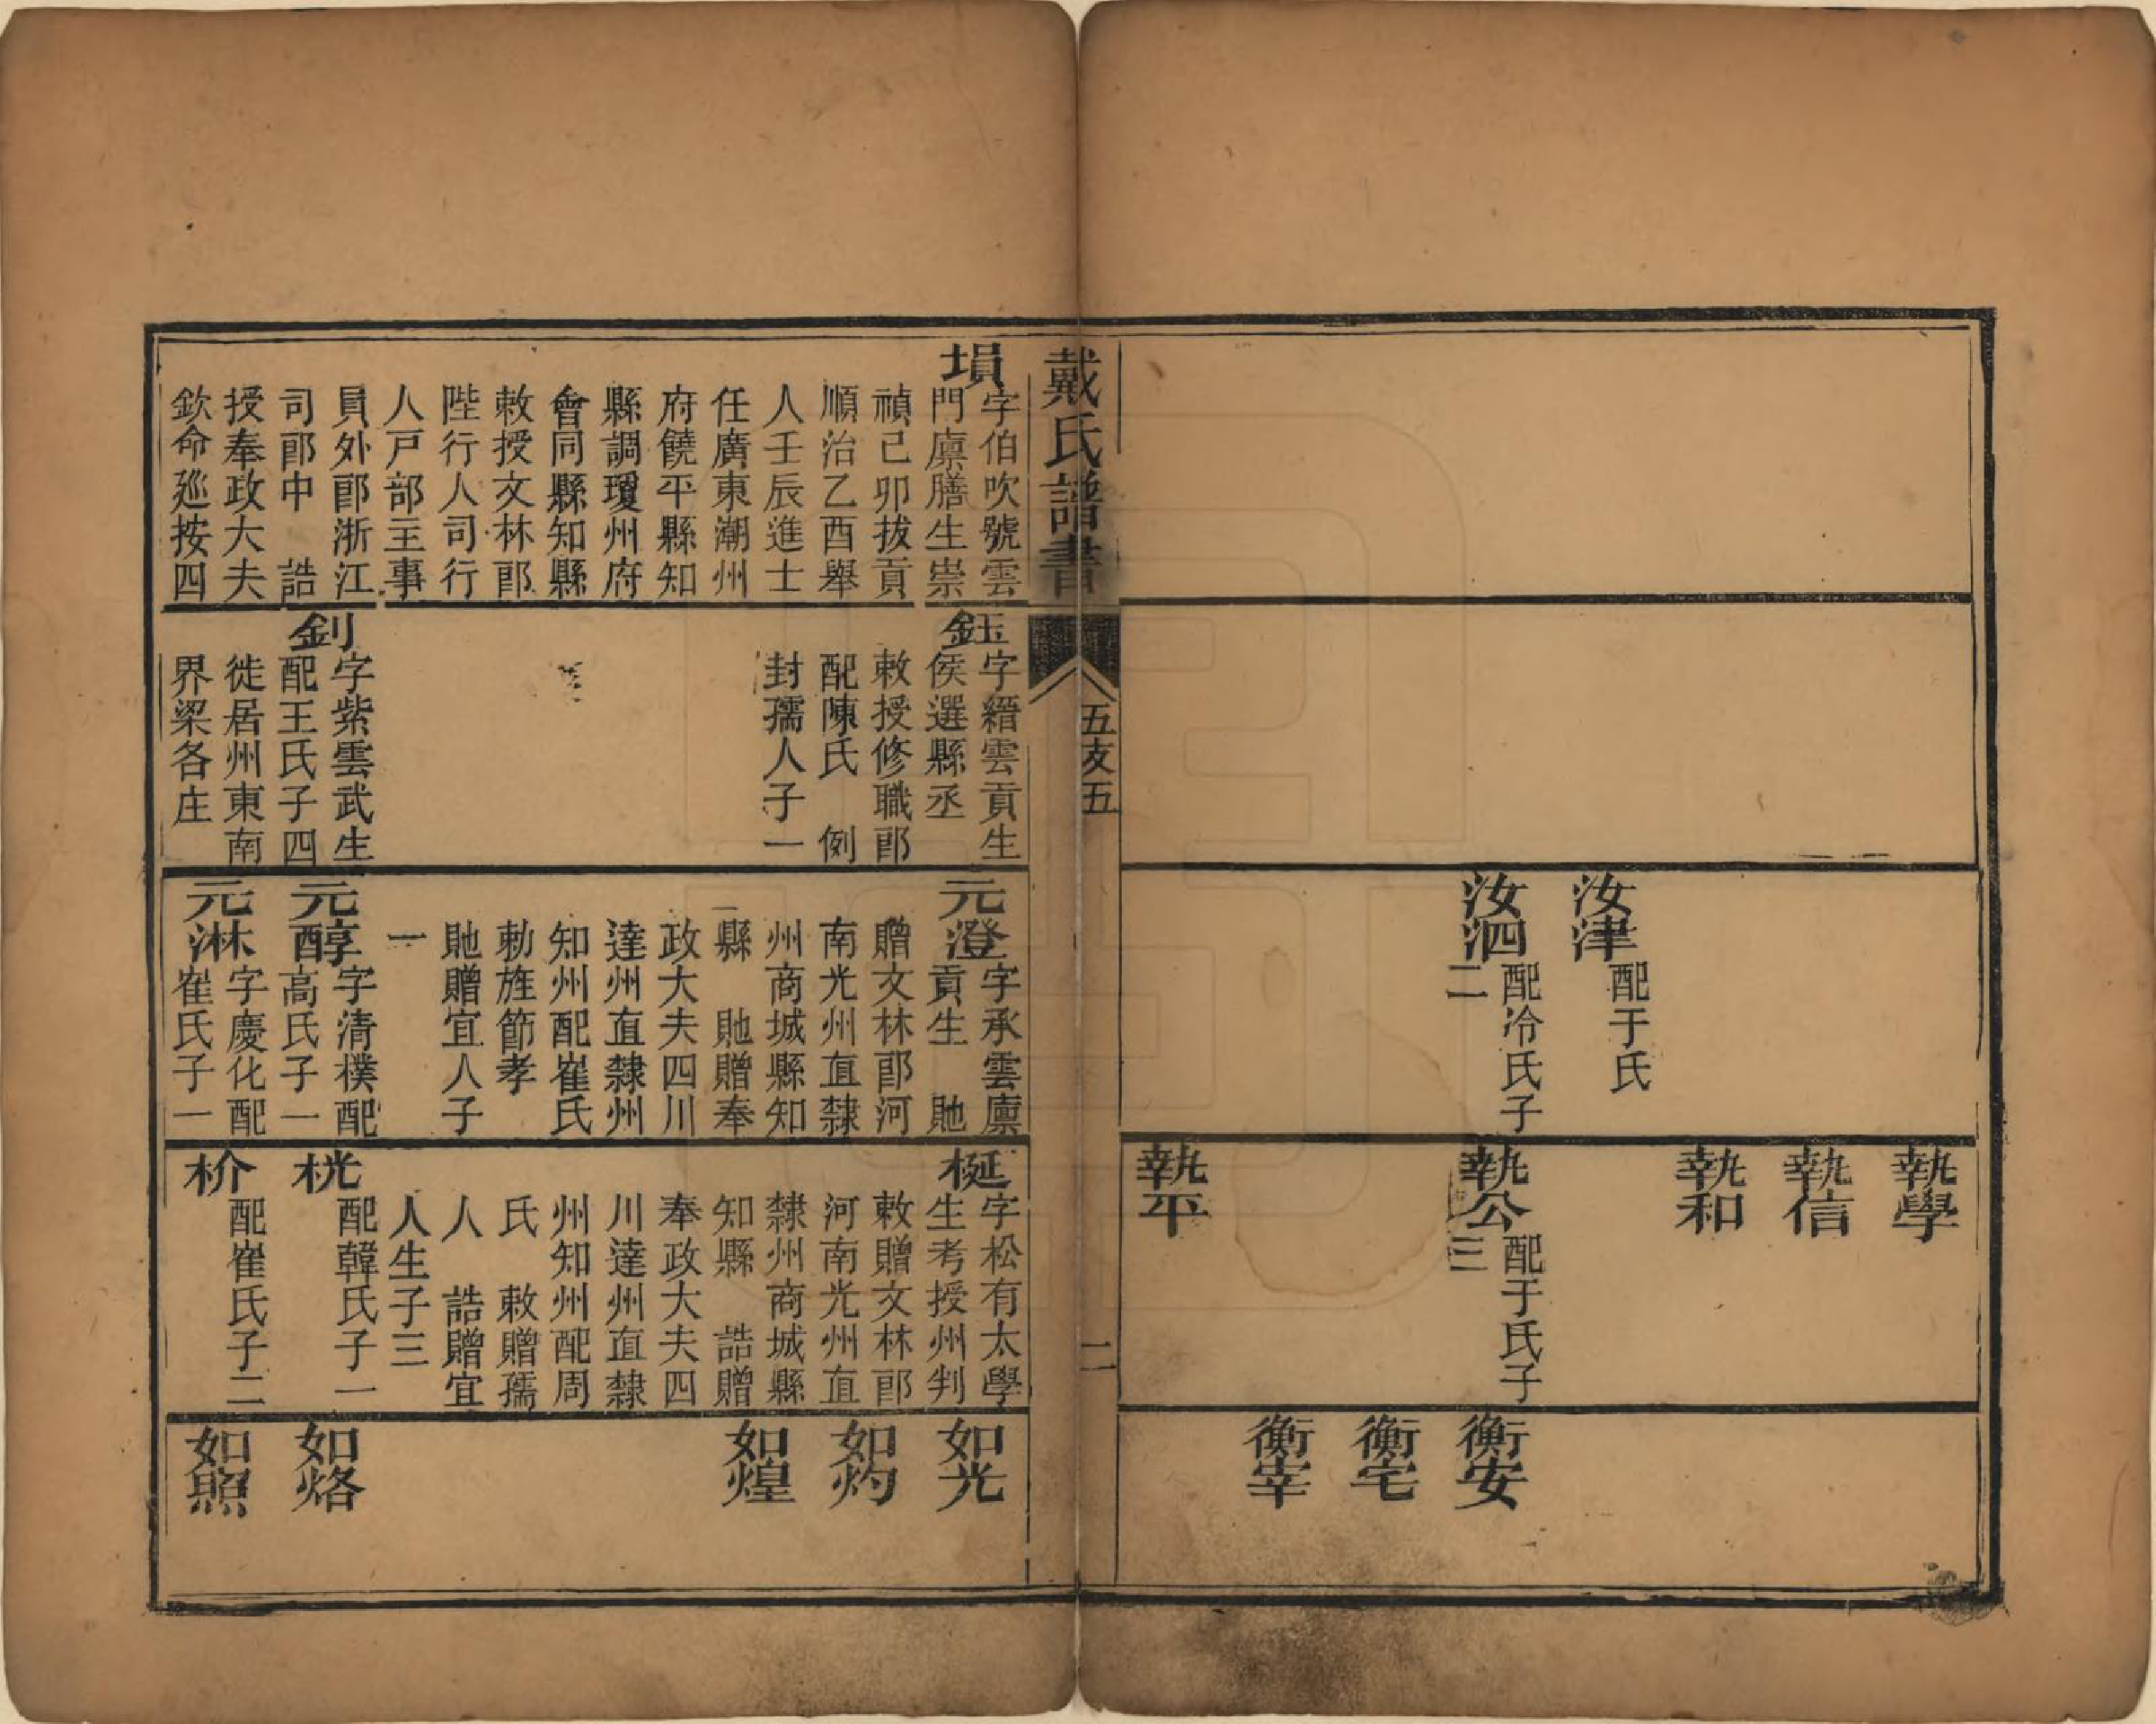 汝津
配于氏
汝泗
配冷氏子
二
執學
執信
執和
執公
配于氏子
三
執平
衡安
衡宅
衡宰
戴氏譜書
五支五
二
塤
字伯吹號雲
門廪膳生崇
禎己卯拔貢
順治乙酉舉
人壬辰進士
任廣東潮州
府饒平縣知
縣調瓊州府
會同縣知縣
敕授文林郎
陛行人司行
人戸部主事
員外郎浙江
司郎中　誥
授奉政大夫
欽命廵按四
鈺
字縉雲貢生
侯選縣丞
敕授修職郎
配陳氏　例
封孺人子一
釗
字紫雲武生
配王氏子四
徙居州東南
界梁各庄
元澄
字承雲廪
貢生　貤
贈文林郎河
南光州直隸
州商城縣知
縣　貤贈奉
政大夫四川
達州直隸州
知州配崔氏
勅旌節孝
貤贈宜人子
一
元醇
字清樸配
高氏子一
元淋
字慶化配
崔氏子一
梴
字松有太學
生考授州判
敕贈文林郎
河南光州直
隸州商城縣
知縣　誥贈
奉政大夫四
川達州直隸
州知州配周
氏　敕贈孺
人　誥贈宜
人生子三
桄
配韓氏子一
枌
配崔氏子二
如光
如灼
如煌
如烙
如照